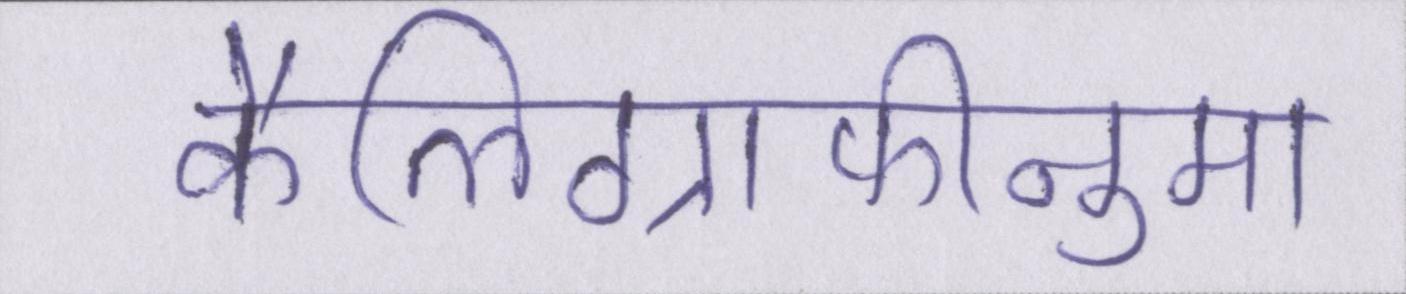 कैलिग्राफीनुमा